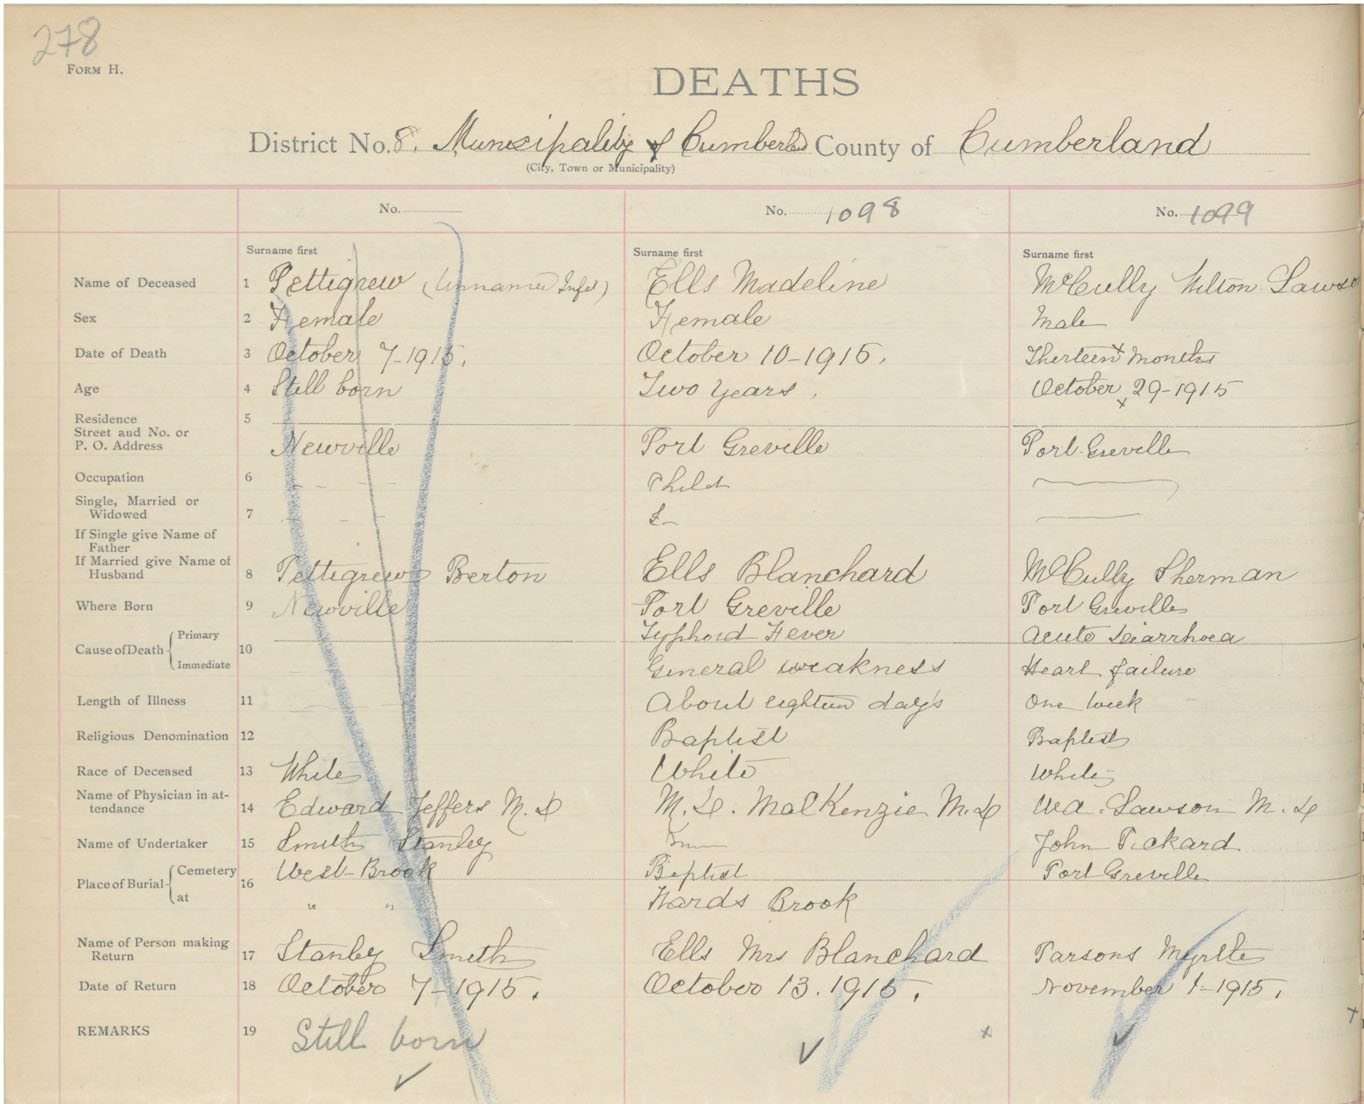 278
FORM H.
DEATHS
District No. 8. Municipality of Cumberland County of Cumberland
(City, Town or Municipality)
No. No. 1098 No. 1099
Surname first Surname first Surname first
Name of Deceased 1 Pettigrew (Unnamed Infat) Ells Madeline McCully Wilton Lawso
Sex 2 Female Female Male
Date of Death 3 October 7-1915. October 10-1915. Thirteen x Months
Age 4 Still born Two Years. October x 29-1915
Residence 5
Street and No. or
P. O. Address Newville Port Greville Port Greville
Occupation 6 - - - Child
Single, Married or
Widowed 7 - - -
If Single give Name of
Father
If Married give Name of
Husband 8 Pettigrew Berton Ells Blanchard McCully Sherman
Where Born 9 Newville Port Greville Port Greville
Cause of Death { Primary 10 Typhoid Fever Acute Diarrhoea
Immediate General weakness Heart failure
Length of Illness 11 About eighteen day's One week
Religious Denomination 12 Baptist Baptist
Race of Deceased 13 White White White
Name of Physician in at-
tendance 14 Edward Jeffers M.D M.D. MacKenzie M.D Wa. Lawson M.D
Name of Undertaker 15 Smith Stanley John Pickard
Place of Burial { Cemetery 16 West Brook Baptist Port Greville
at " " Wards Brook
Name of Person making
Return 17 Stanley Smith Ells Mrs Blanchard Parsons Myrtle
Date of Return 18 October 7-1915. October 13. 1915. November 1-1915.
REMARKS 19 Still born x x